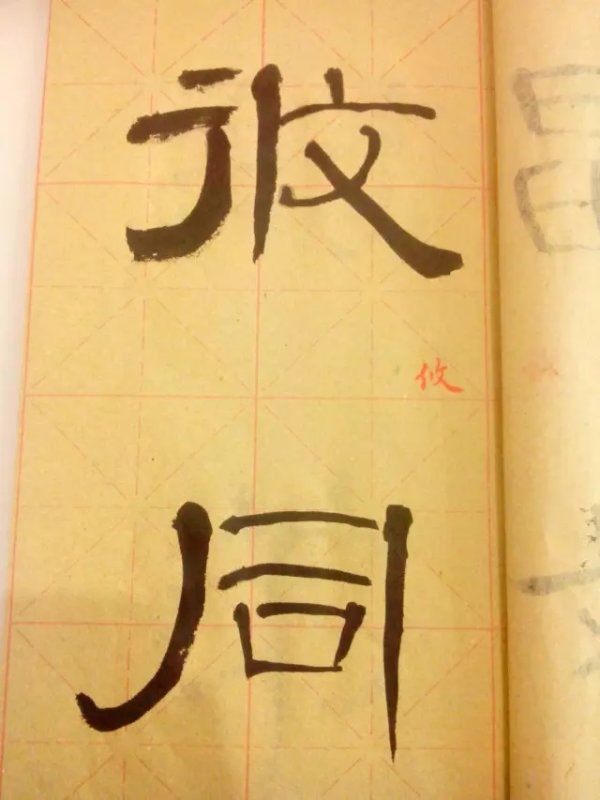 攸
攸
同